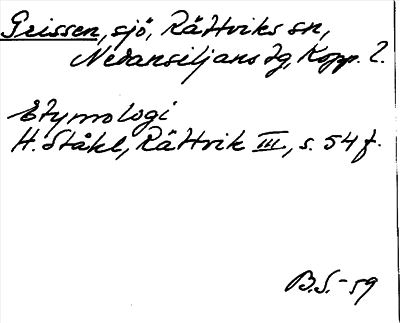 Grissen, sjö, Rättviks sn,
Nedansiljans dg, Kopp. l.
Etymologi
H. Ståhl, Rättvik III, s. 54 f.
B.S. -59